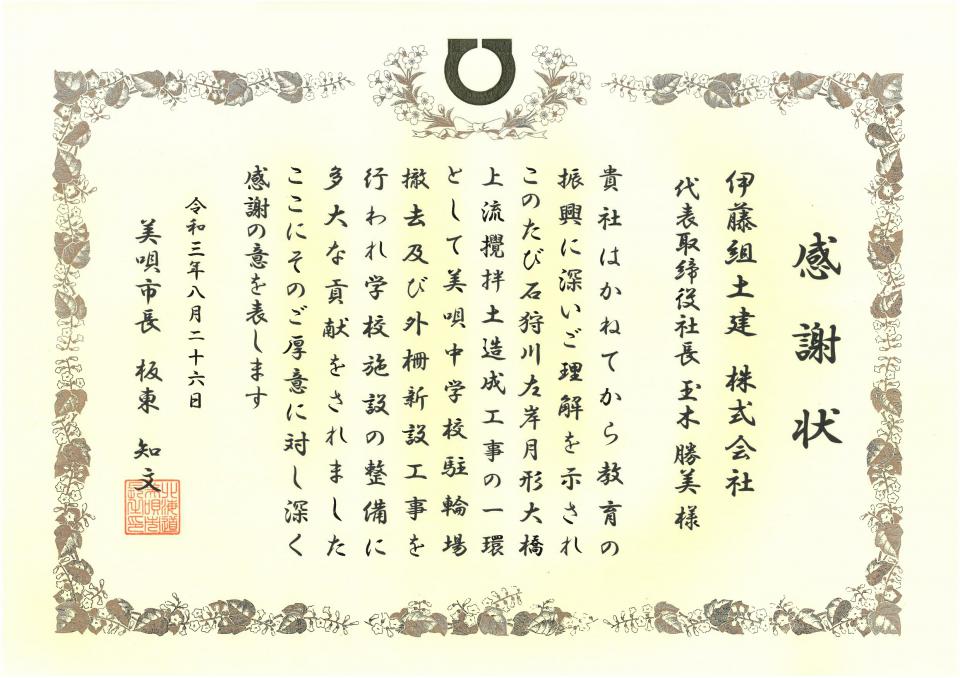 感謝状
伊藤組土建 株式会社
代表取締役社長 玉木勝美様
貴社はかねてから教育の
振興に深いご理解を示され
このたび石狩川左岸月形大橋
上流攪拌土造成工事の一環
として美唄中学校駐輪場
撤去及び外柵新設工事を
行われ学校施設の整備に
多大な貢献をされました
ここにそのご厚意に対し深く
感謝の意を表します
令和三年八月二十六日
美唄市長 板東 知文
北海道
美唄市
長之印